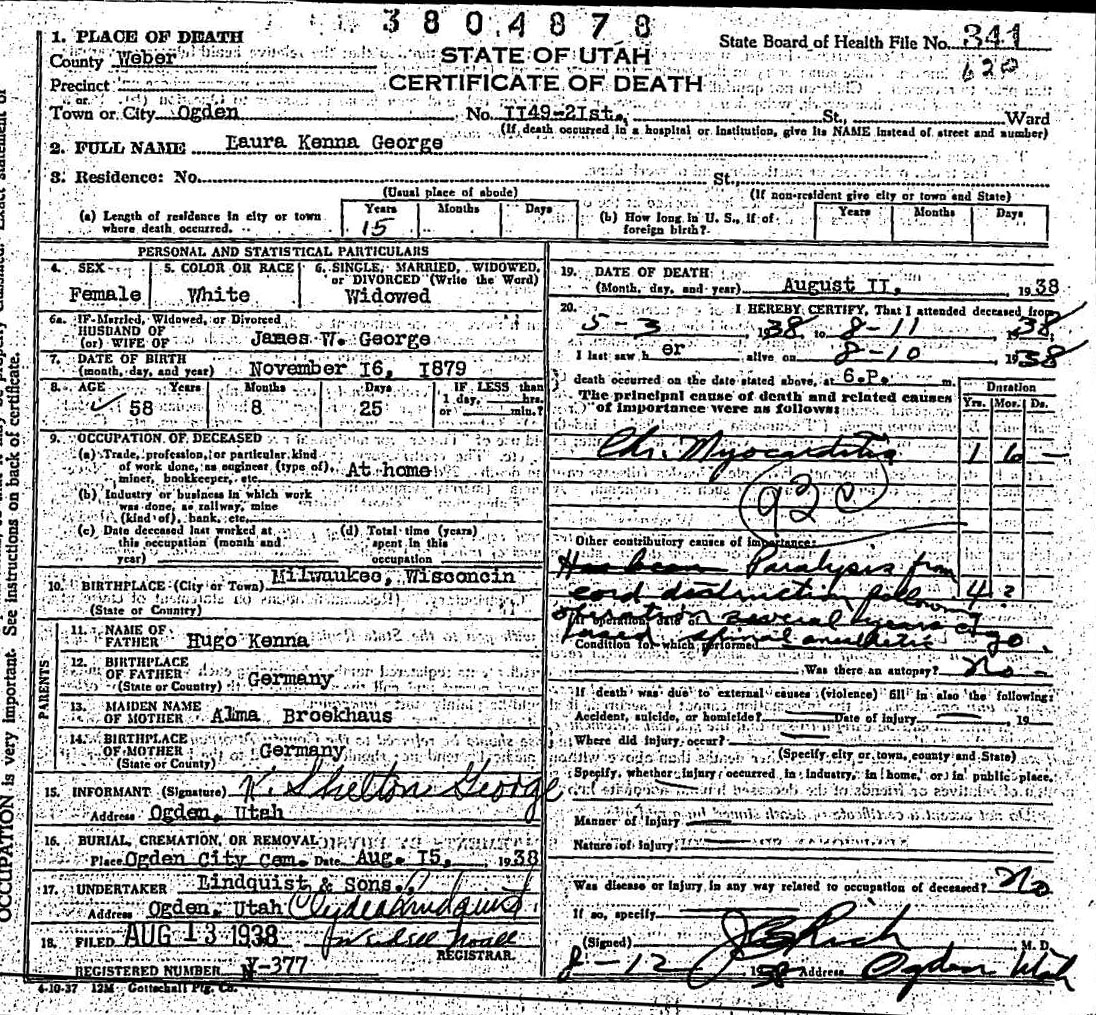 3804878
1. PLACE OF DEATH
County Weber
Precinct
or
Town or City Ogden
STATE OF UTAH
CERTIFICATE OF DEATH
State Board of Health File No. 341
620
No. II49-2Ist. St., Ward
(If death occurred in a hospital or institution, give its NAME instead of street and number)
2. FULL NAME Laura Kenna George
3. Residence: No. St.,
(Usual place of abode)
(If non-resident give city or town and State)
(a) Length of residence in city or town where death occurred.
Years Months Days
15
(b) How long in U. S., if of foreign birth?
Years Months Days
PERSONAL AND STATISTICAL PARTICULARS
4. SEX
Female
5. COLOR OR RACE
White
6. SINGLE, MARRIED, WIDOWED,
or DIVORCED (Write the Word)
Widowed
6a. If Married, Widowed, or Divorced
HUSBAND OF
(or) WIFE OF James W. George
7. DATE OF BIRTH
(month, day, and year) November I6, I879
8. AGE Years Months Days
58 8 25
IF LESS than
1 day, hrs.
or min.?
9. OCCUPATION OF DECEASED
(a) Trade, profession, or particular kind
of work done, as engineer (type of),
miner, bookkeeper, etc. At home
(b) Industry or business in which work
was done, as railway, mine
(kind of), bank, etc.
(c) Date deceased last worked at
this occupation (month and
year)
(d) Total time (years)
spent in this
occupation
10. BIRTHPLACE (City or Town) Milwaukee, Wisconcin
(State or Country)
PARENTS
11. NAME OF
FATHER Hugo Kenna
12. BIRTHPLACE
OF FATHER Germany
(State or Country)
13. MAIDEN NAME
OF MOTHER Alma Broekhaus
14. BIRTHPLACE
OF MOTHER Germany
(State or County)
15. INFORMANT (Signature) K. Shelton George
Address Ogden, Utah
16. BURIAL, CREMATION, OR REMOVAL
Place Ogden City Cem. Date Aug. I5, 1938
17. UNDERTAKER Lindquist & Sons.
Address Ogden, Utah Clyde Lindquist
18. FILED AUG 13 1938
REGISTRAR.
REGISTERED NUMBER Y-377
4-10-37 12M Gottschall Ptg. Co.
19. DATE OF DEATH
(Month, day, and year) August II, 1938
20. I HEREBY CERTIFY, That I attended deceased from
5-3 1938 to 8-11 1938
I last saw h er alive on 8-10, 1938
death occurred on the date stated above, at 6.P. m.
The principal cause of death and related causes
of importance were as follows:
Duration
Yrs. Mos. Ds.
Chr. Myocarditis 1 6 -
92 c
Other contributory causes of importance:
Has been Paralysis from
cord destruction following 4 ?
operation several years ago
used spinal anesthetic
If operation, date of
Condition for which performed
Was there an autopsy? No -
If death was due to external causes (violence) fill in also the following:
Accident, suicide, or homicide? Date of injury 19
Where did injury occur?
(Specify city or town, county and State)
Specify whether injury occurred in industry, in home, or in public place.
Manner of injury
Nature of injury
Was disease or injury in any way related to occupation of deceased? No
If so, specify
(Signed) Rich M. D.
8-12 1938 Address Ogden Utah
OCCUPATION is very important. See instructions on back of certificate.